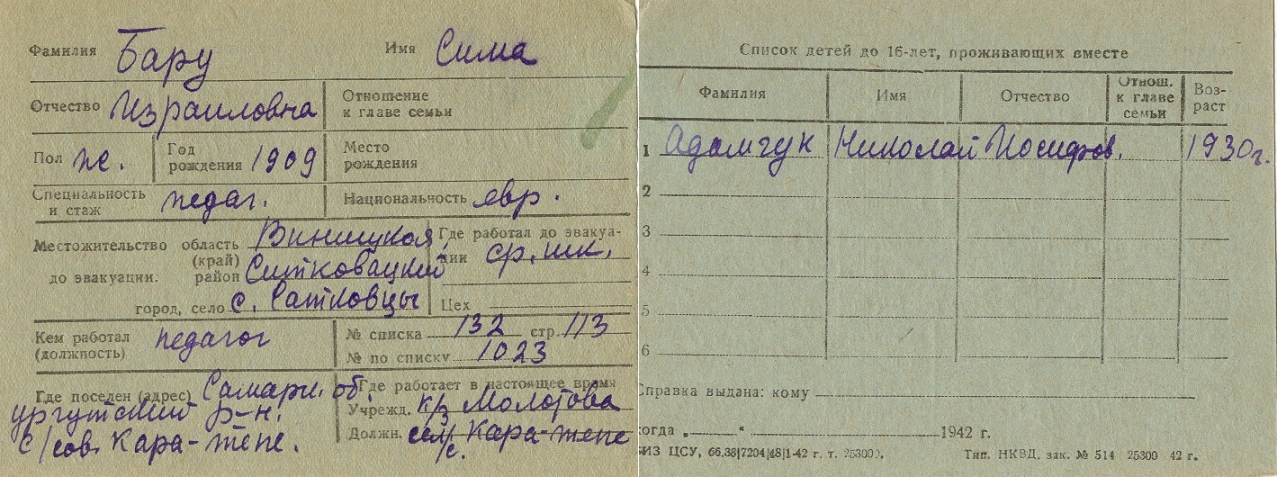 Фамилия Бару Имя Сима
Отчество Израиловна Отношение к главе семьи
Пол же. Год рождения 1909 Место рождения
Специальность и стаж педаг. Национальность евр.
Местожительство до эвакуации. область (край) Виницкая Где работал до эвакуации ср. шк.
район Ситковацкий
город, село с. Сатковцы Цех
Кем работал (должность) педагог № списка 132 стр. 113
№ по списку 1023
Где поселен (адрес) Самарк. об. Где работает в настоящее время
ургутский р-н. Учрежд. к/з Молотова
с/сов. Кара-тепе. Должн. Кара-тепе
Список детей до 16-лет, проживающих вместе
Фамилия Имя Отчество Отнош. к главе семьи Возраст
1 Адамчук Николай Иосифов. 1930 г.
2
3
4
5
6
Справка выдана: кому
когда „ “ 1942 г.
БИЗ ЦСУ, 66.38|7204|48|1-42 г. т. 25300. Тип. НКВД, зак. № 514 25300 42 г.